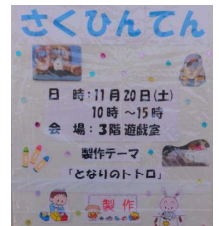 さくひんてん
日 時:11月20日(土)
10時～15時
会 場:3階 遊戯室
製作テーマ
「となりのトトロ」
製作